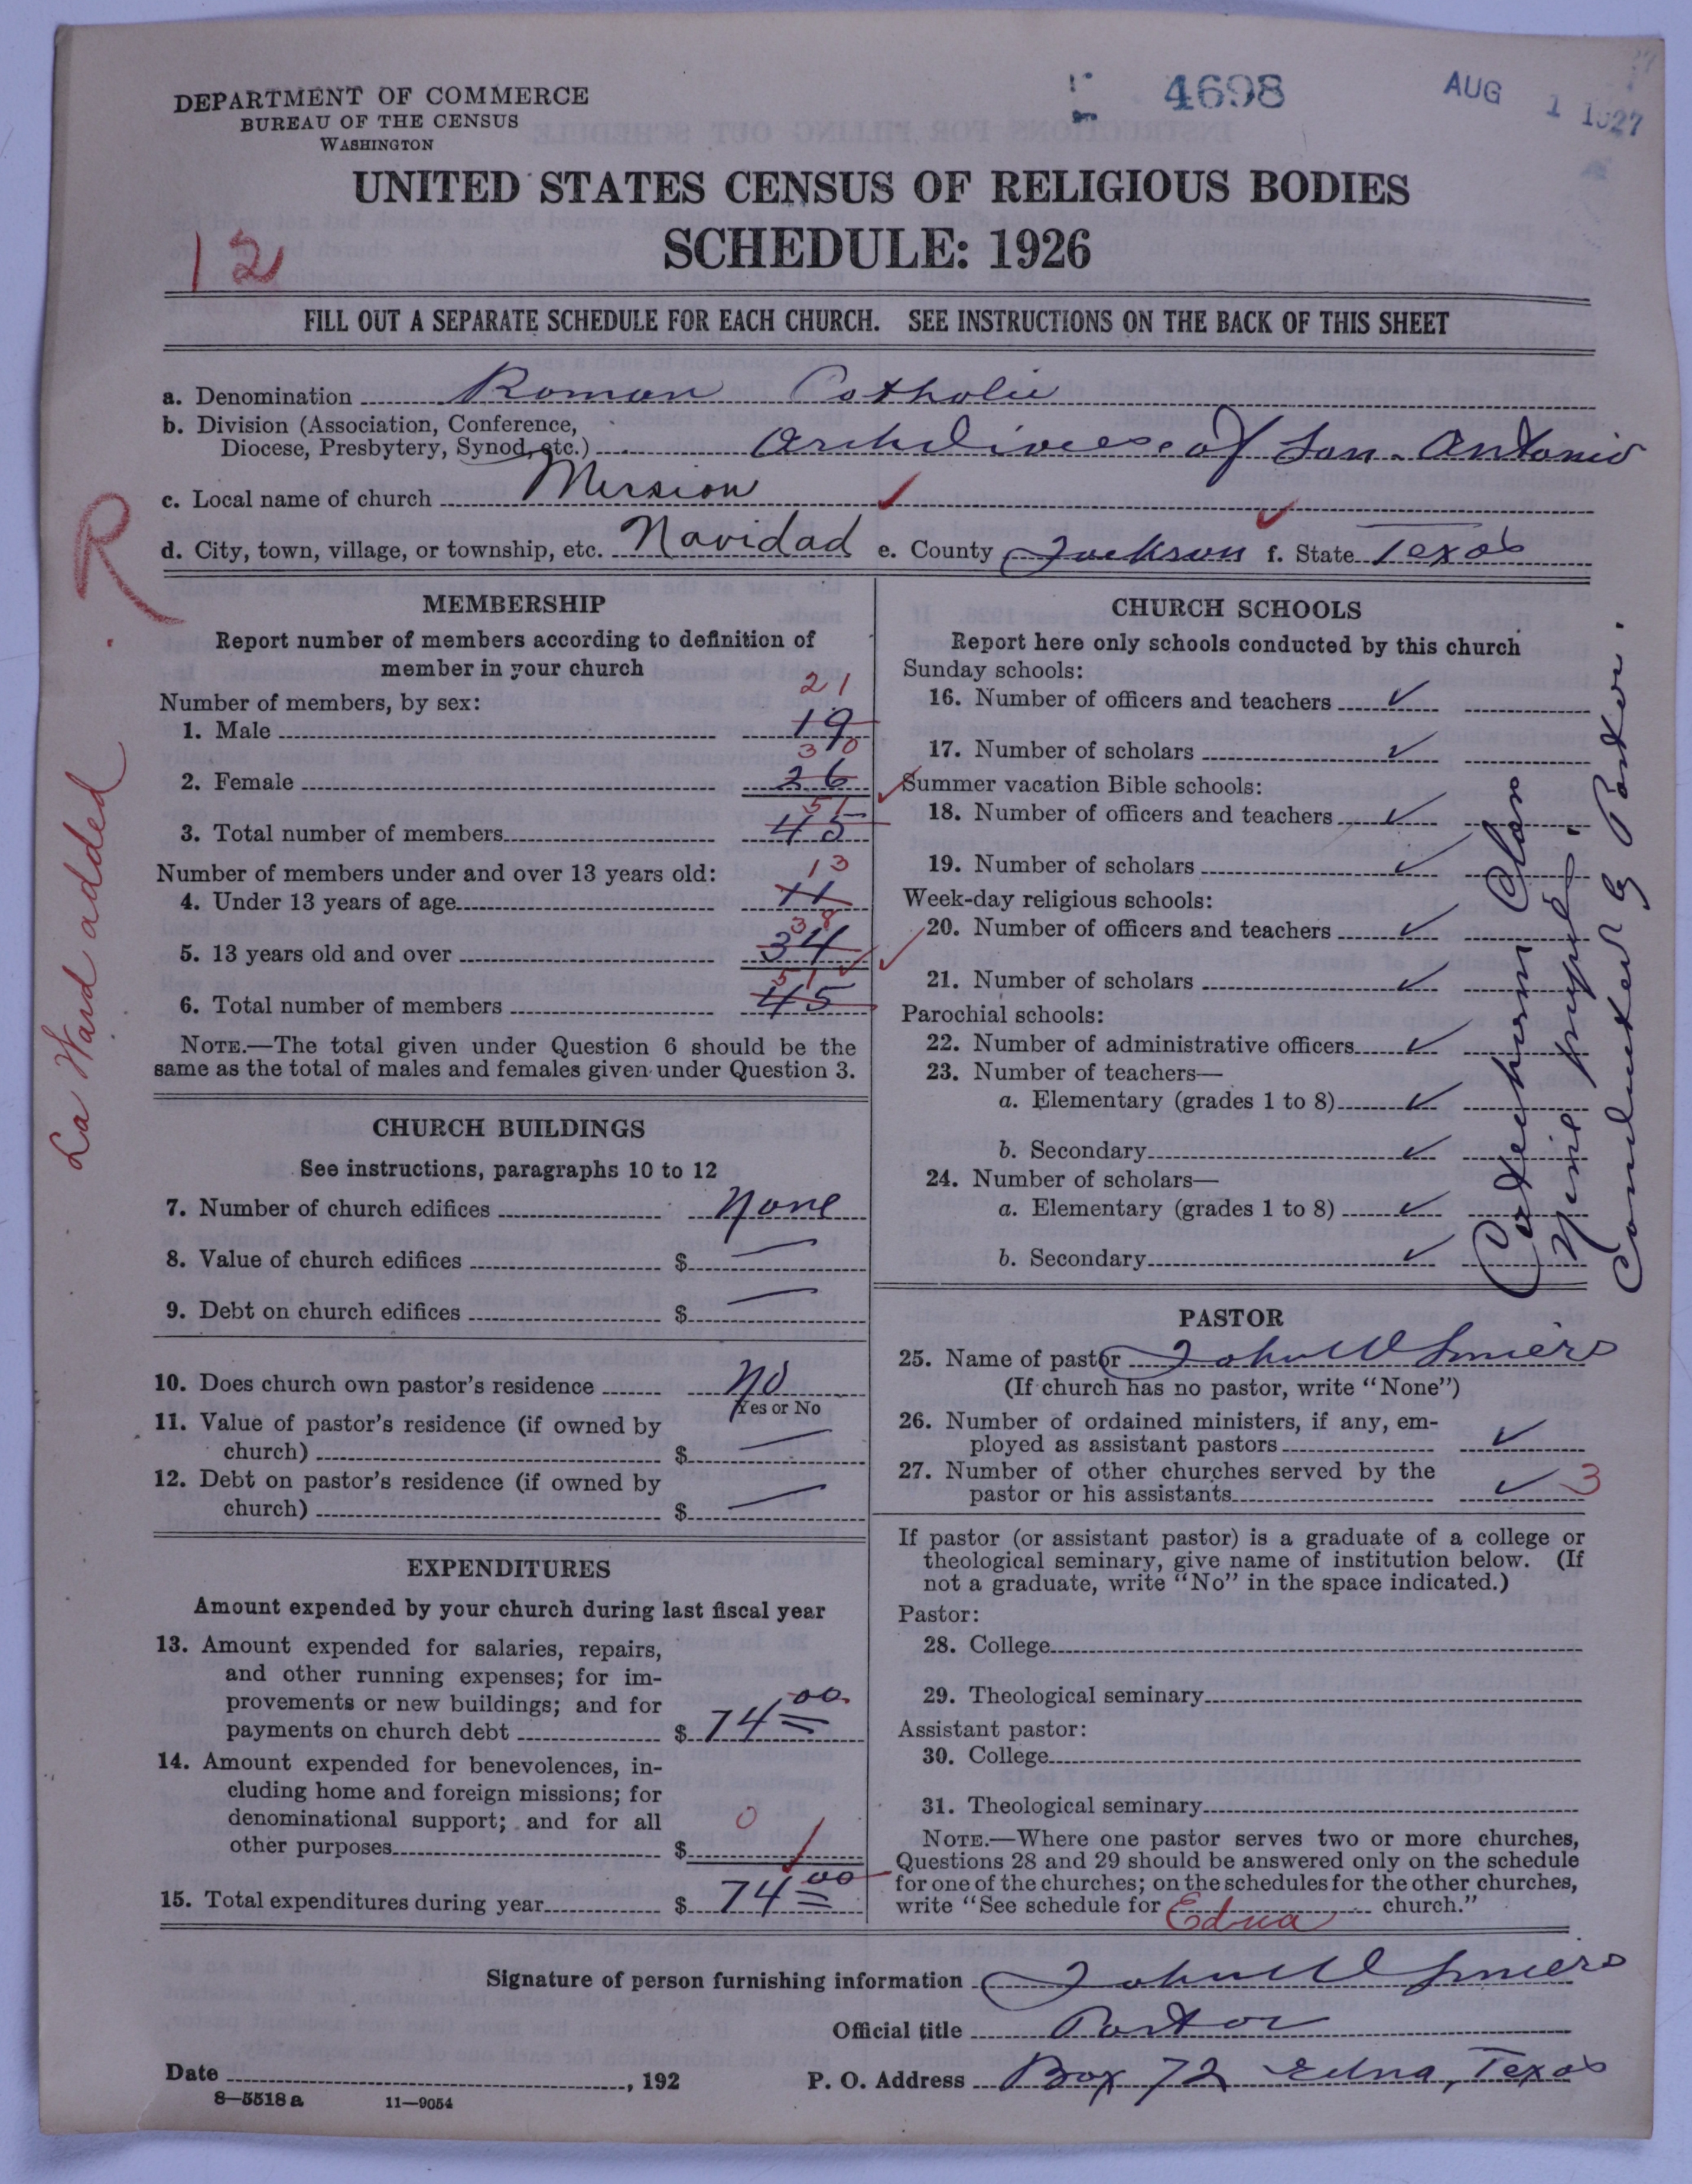 4698
AUG 1 1927
DEPARTMENT OF COMMERCE
BUREAU OF THE CENSUS
WASHINGTON
UNITED STATES CENSUS OF RELIGIOUS BODIES
SCHEDULE: 1926
12
FILL OUT A SEPARATE SCHEDULE FOR EACH CHURCH. SEE INSTRUCTIONS ON THE BACK OF THIS SHEET
a. Denomination Roman Catholic
b. Division (Association, Conference,
Diocese, Presbytery, Synod, etc.) Archdiocese of San Antonio
c. Local name of church Mission
d. City, town, village, or township, etc. Navidad e. County Jackson f. State Texas
R
La Ward added
MEMBERSHIP
Report number of members according to definition of
member in your church
Number of members, by sex:
21
1. Male 19
30
2. Female 26
51
3. Total number of members 45
Number of members under and over 13 years old:
13
4. Under 13 years of age 11
38
5. 13 years old and over 34
51
6. Total number of members 45
NOTE.—The total given under Question 6 should be the
same as the total of males and females given under Question 3.
CHURCH BUILDINGS
See instructions, paragraphs 10 to 12
7. Number of church edifices None
8. Value of church edifices $ —
9. Debt on church edifices $ —
10. Does church own pastor's residence No
Yes or No
11. Value of pastor's residence (if owned by
church) $ —
12. Debt on pastor's residence (if owned by
church) $ —
EXPENDITURES
Amount expended by your church during last fiscal year
13. Amount expended for salaries, repairs,
and other running expenses; for im-
provements or new buildings; and for
payments on church debt $ 74 00
14. Amount expended for benevolences, in-
cluding home and foreign missions; for
denominational support; and for all
other purposes $ 0
15. Total expenditures during year $ 74 00
CHURCH SCHOOLS
Report here only schools conducted by this church
Sunday schools:
16. Number of officers and teachers ✓
17. Number of scholars ✓
Summer vacation Bible schools:
18. Number of officers and teachers ✓
19. Number of scholars ✓
Week-day religious schools:
20. Number of officers and teachers ✓
21. Number of scholars ✓
Parochial schools:
22. Number of administrative officers ✓
23. Number of teachers—
a. Elementary (grades 1 to 8) ✓
b. Secondary ✓
24. Number of scholars—
a. Elementary (grades 1 to 8) ✓
b. Secondary ✓
Catechism Class
Nine pupils.
Conducted by Pastor.
PASTOR
25. Name of pastor John W Smiers
(If church has no pastor, write "None")
26. Number of ordained ministers, if any, em-
ployed as assistant pastors ✓
27. Number of other churches served by the
pastor or his assistants ✓ 3
If pastor (or assistant pastor) is a graduate of a college or
theological seminary, give name of institution below. (If
not a graduate, write "No" in the space indicated.)
Pastor:
28. College
29. Theological seminary
Assistant pastor:
30. College
31. Theological seminary
NOTE.—Where one pastor serves two or more churches,
Questions 28 and 29 should be answered only on the schedule
for one of the churches; on the schedules for the other churches,
write "See schedule for Edna church."
Signature of person furnishing information John W Smiers
Official title Pastor
Date , 192
P. O. Address Box 72 Edna, Texas
8—5518 a 11—9054